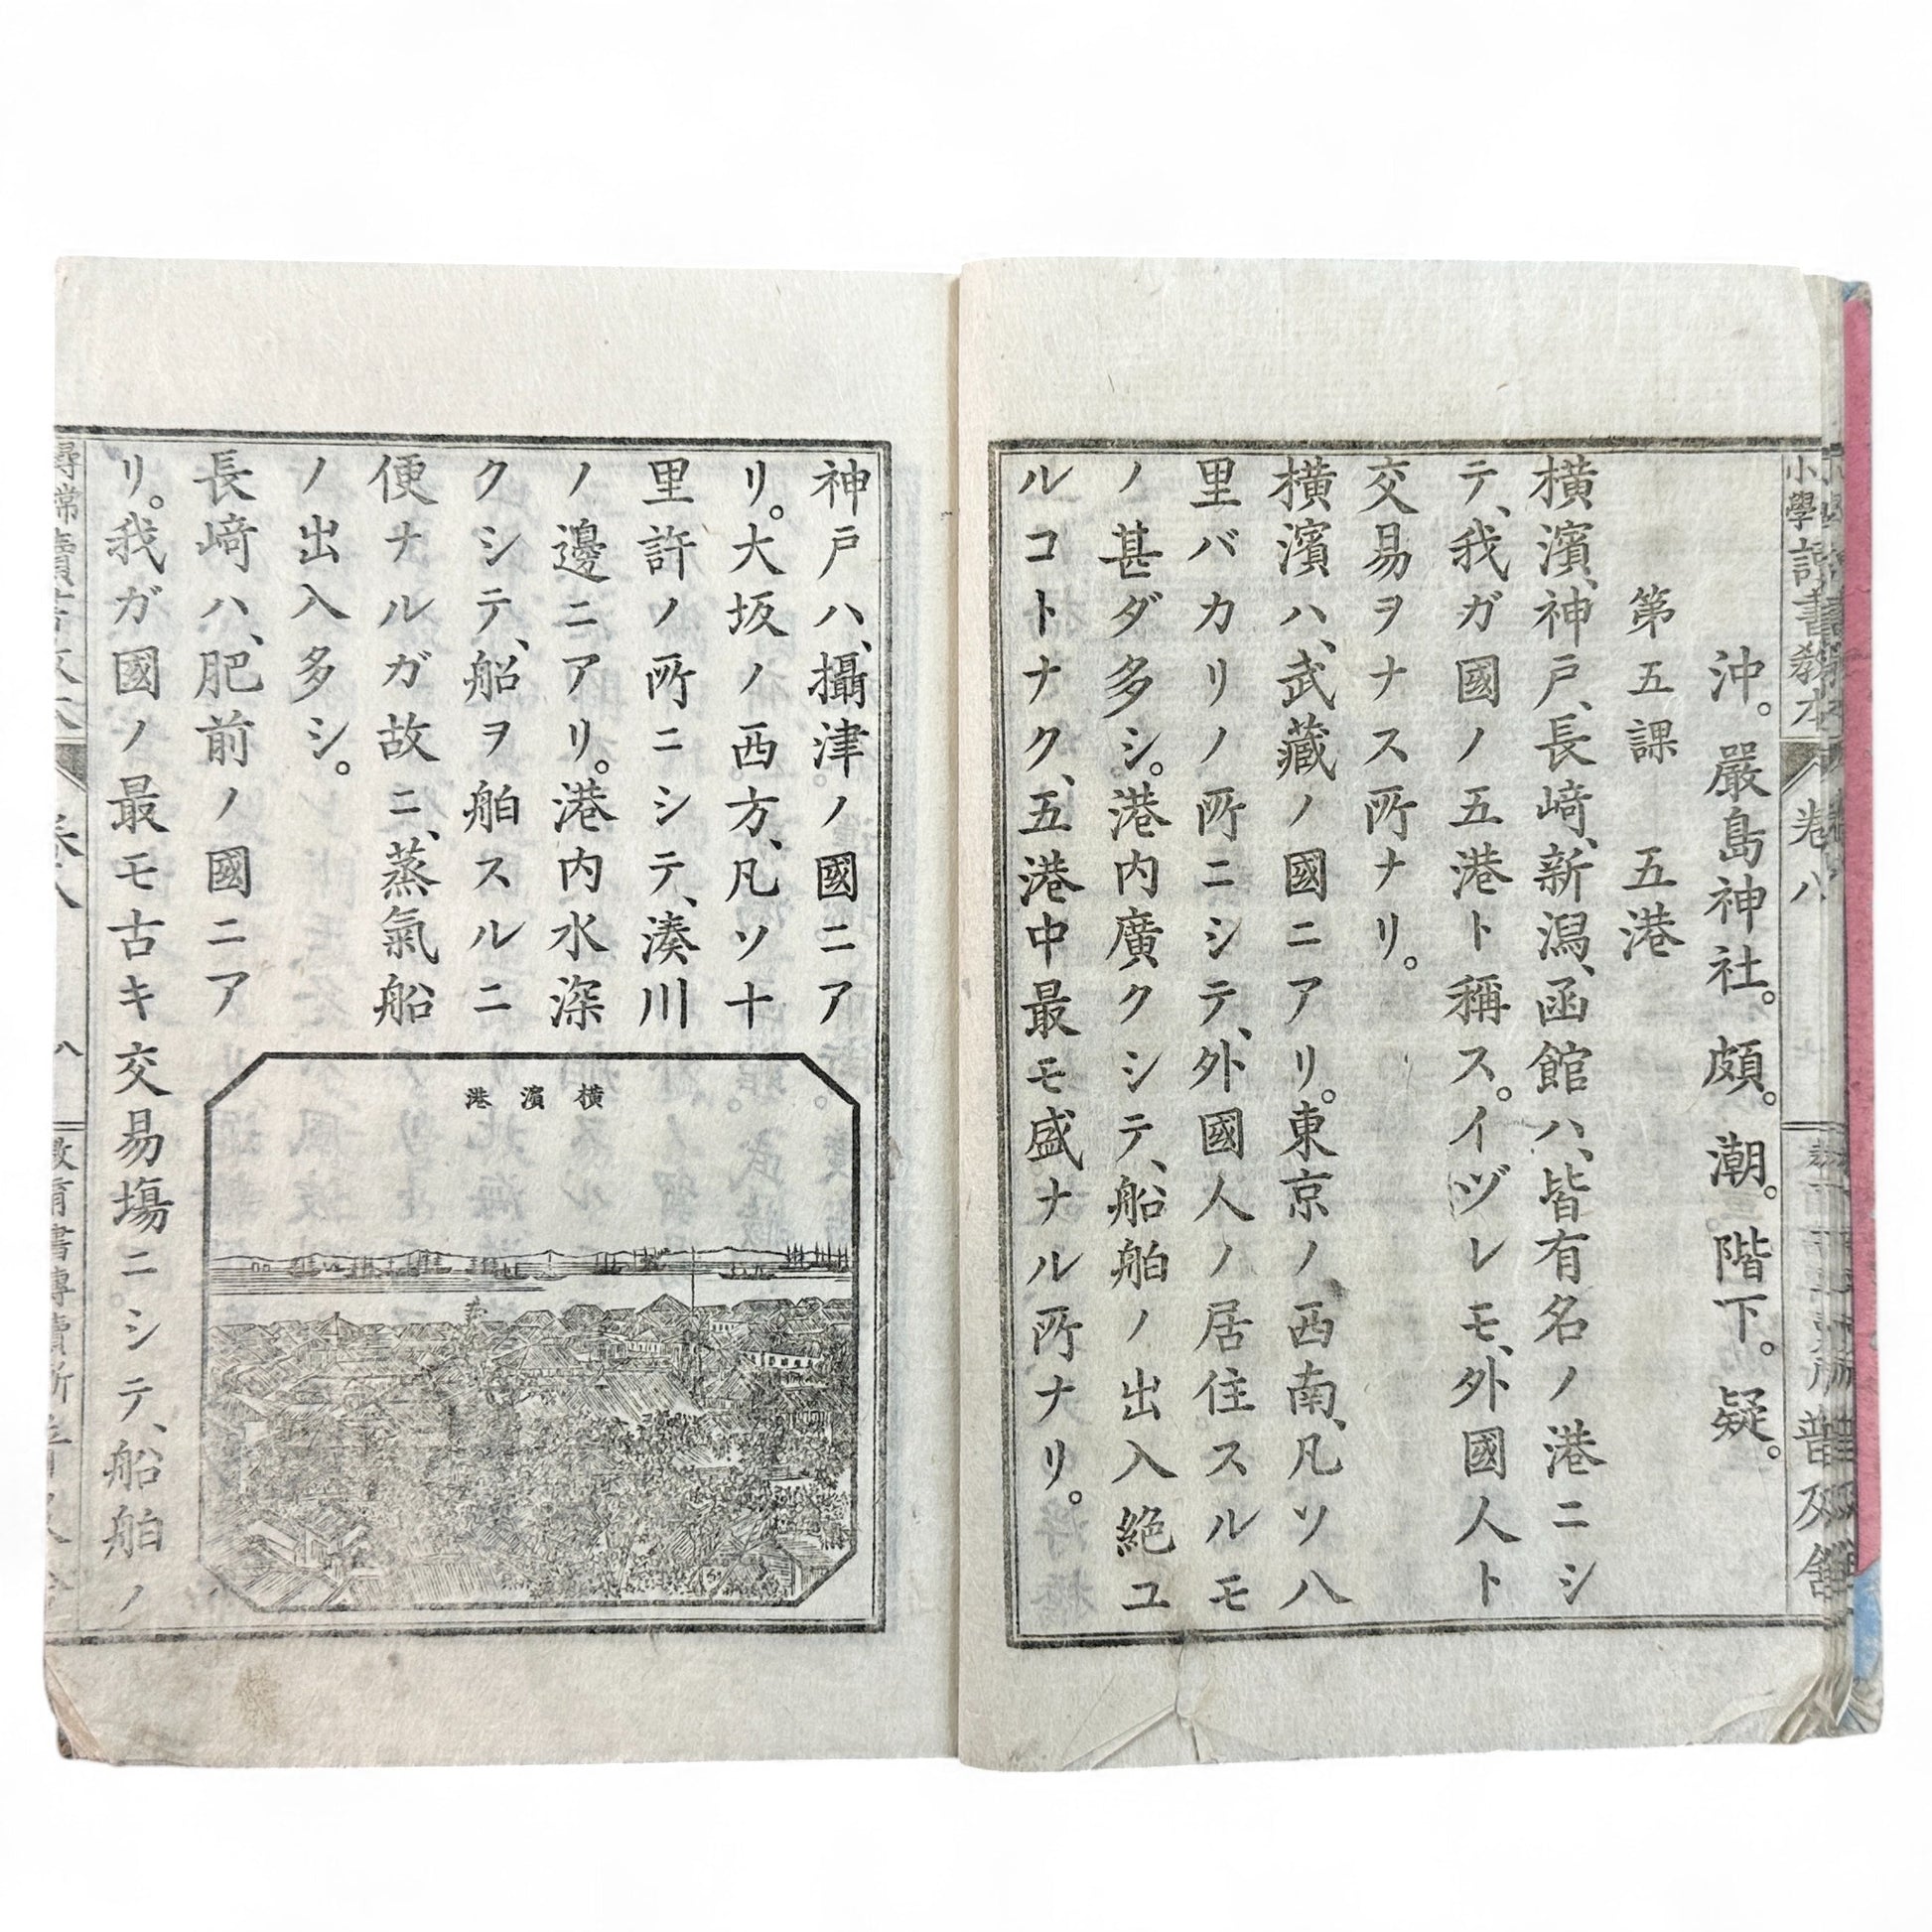 沖。嚴島神社。頗。潮。階下。疑。
第五課　五港
橫濱、神戶、長﨑、新潟、函館ハ、皆有名ノ港ニシ
テ、我ガ國ノ五港ト稱ス。イヅレモ、外國人ト
交易ヲナス所ナリ。
橫濱ハ、武藏ノ國ニアリ。東京ノ西南、凡ソ八
里バカリノ所ニシテ、外國人ノ居住スルモ
ノ甚ダ多シ。港内廣クシテ、船舶ノ出入絕ユ
ルコトナク、五港中最モ盛ナル所ナリ。
神戶ハ、攝津ノ國ニア
リ。大坂ノ西方、凡ソ十
里許ノ所ニシテ、湊川
ノ邊ニアリ。港内水深
クシテ、船ヲ舶スルニ
便ナルガ故ニ、蒸氣船
ノ出入多シ。
長﨑ハ、肥前ノ國ニア
リ。我ガ國ノ最モ古キ交易塲ニシテ、船舶ノ
橫濱港
小學讀書教本
卷八
普及舍
尋常
卷八
八